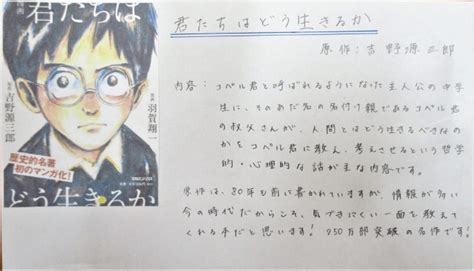 漫画
君たちは
原作 吉野源三郎
漫画 羽賀翔一
歴史的名著
初のマンガ化!
どう生きるか
君たちはどう生きるか
原作:吉野源三郎
内容:コペル君と呼ばれるようになった主人公の中学
生に、そのあだ名の名付け親であるコペル君
の叔父さんが、人間とはどう生きるべきなのか
をコペル君に教え、考えさせるという哲学
的・心理的な話が主な内容です。
原作は、80年も前に書かれていますが、情報が多い
今の時代だからこそ、気づきにくい一面を教えて
くれる本だと思います! 250万部突破の名作です!